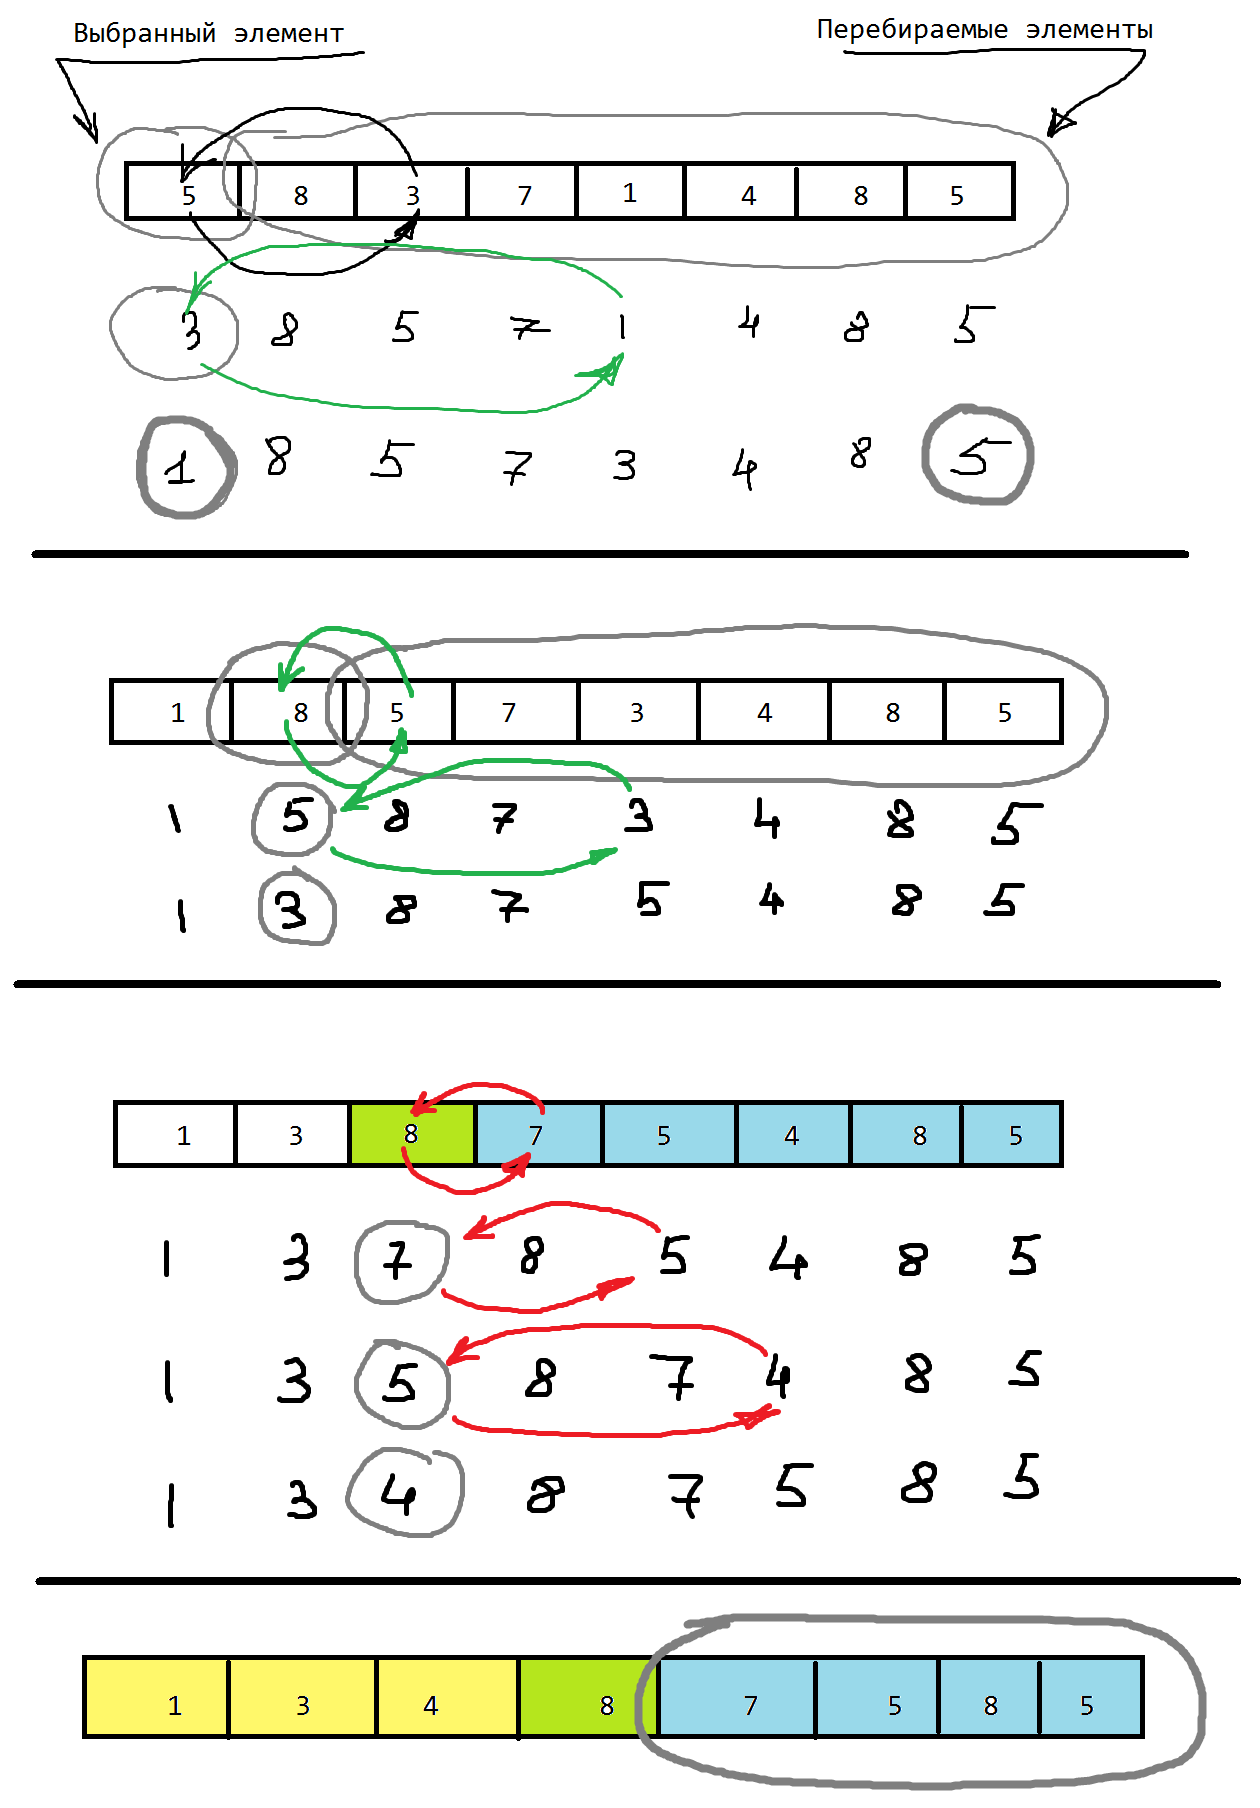 Выбранный элемент Перебираемые элементы
5 8 3 7 1 4 8 5
3 8 5 7 1 4 8 5
1 8 5 7 3 4 8 5
1 8 5 7 3 4 8 5
1 5 8 7 3 4 8 5
1 3 8 7 5 4 8 5
1 3 8 7 5 4 8 5
1 3 7 8 5 4 8 5
1 3 5 8 7 4 8 5
1 3 4 8 7 5 8 5
1 3 4 8 7 5 8 5